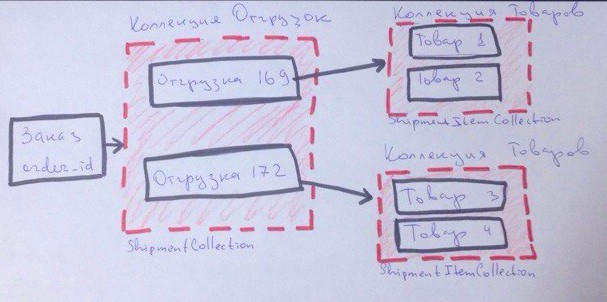 Коллекция Отгрузок
Коллекция Товаров
Товар 1
Отгрузка 169
Товар 2
ShipmentItemCollection
Заказ
order_id
Коллекция Товаров
Отгрузка 172
Товар 3
Товар 4
ShipmentCollection
ShipmentItemCollection